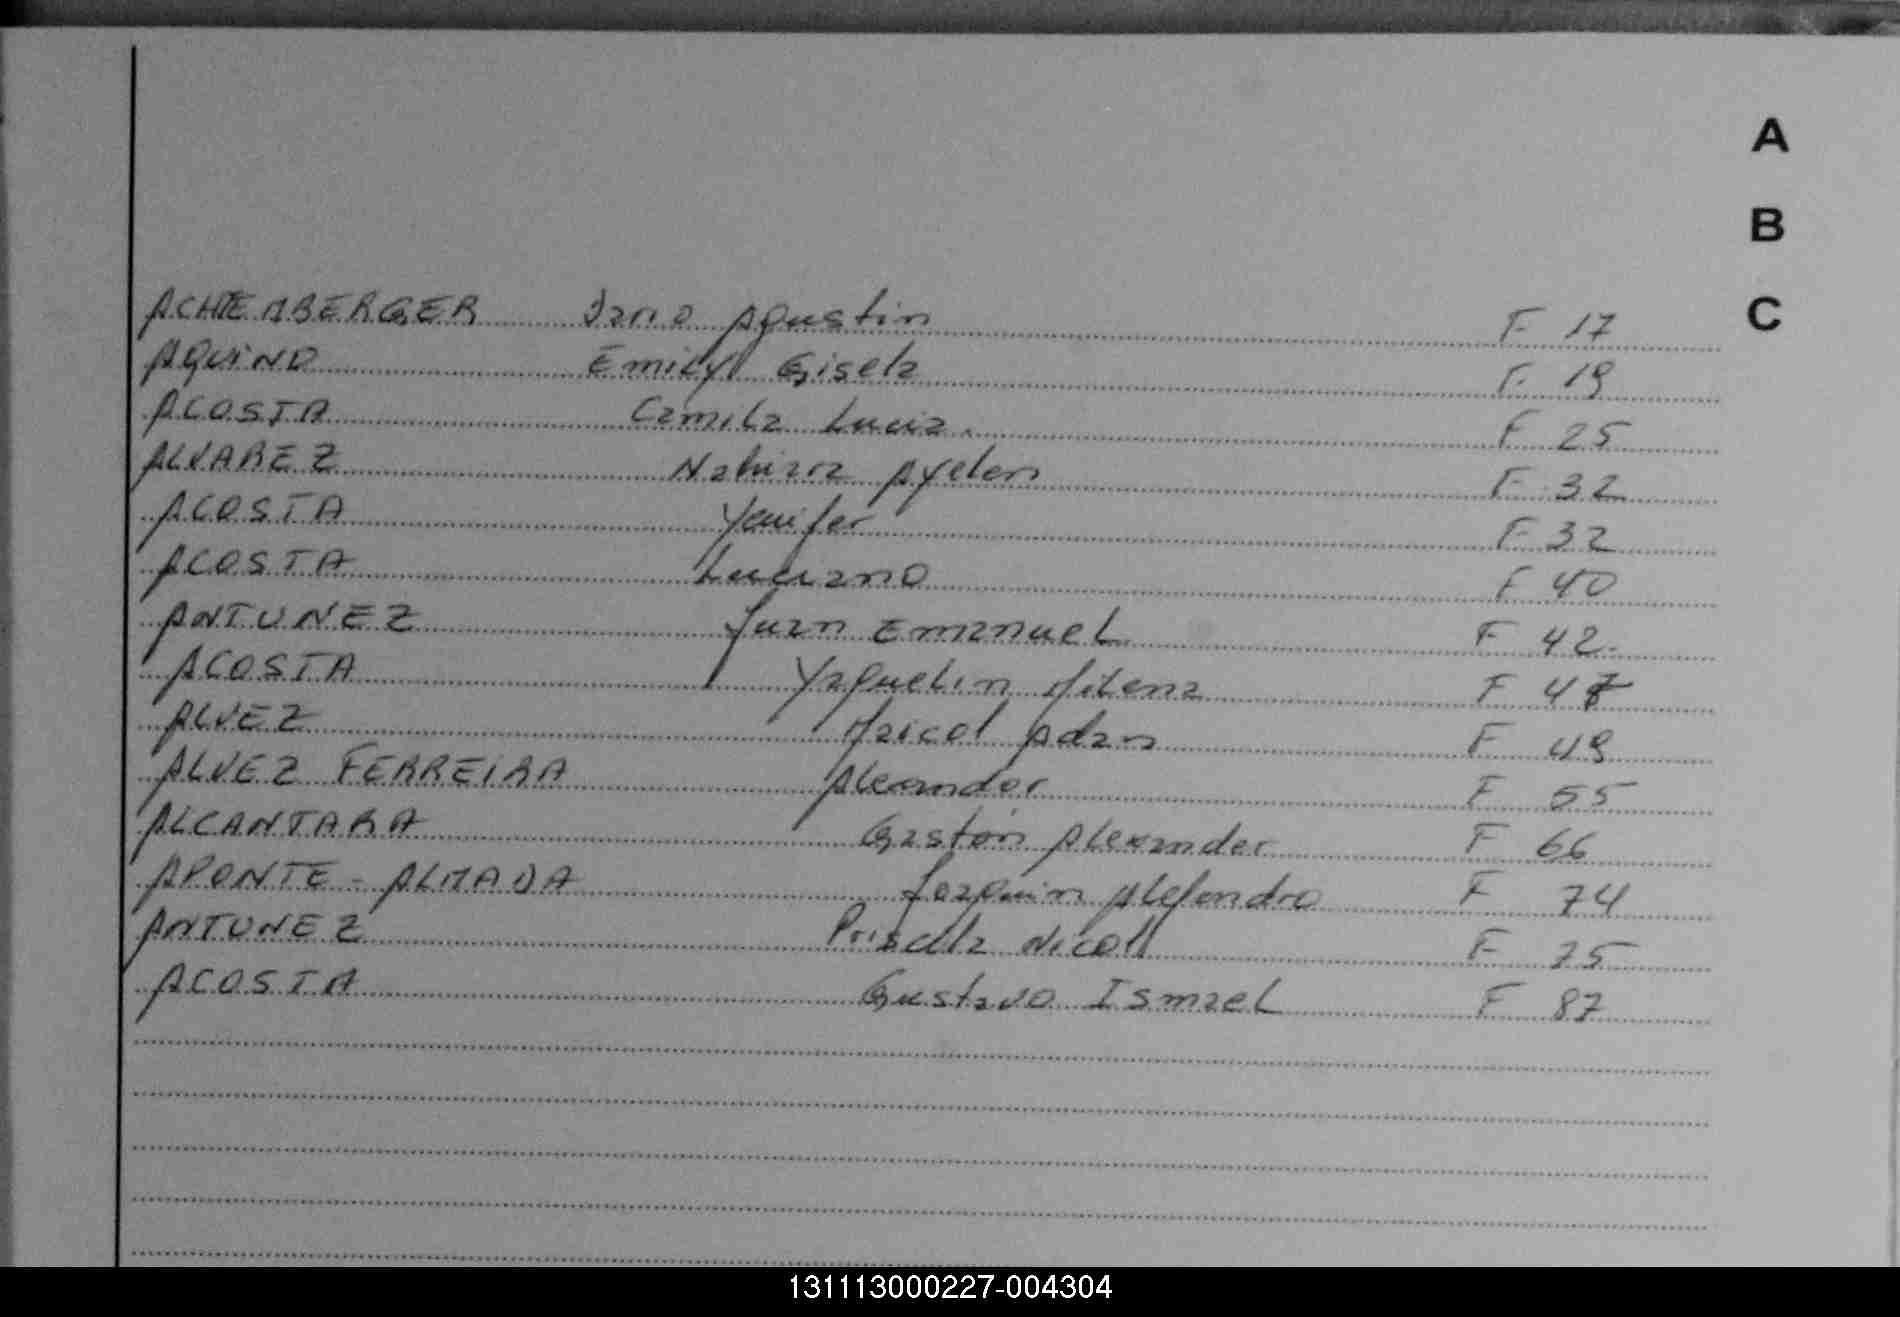 A
B
C
ACHTEMBERGER Jano Agustin F 17
AQUINO Emily Gisela F 19
ACOSTA Camila Lucia. F 25
ALVAREZ Nahiara Ayelen F 32
ACOSTA Yenifer F 32
ACOSTA Luciano F 40
ANTUNEZ Juan Emanuel F 42
ACOSTA Yaquelin Milena F 47
ALVEZ Maicol Adan F 49
ALVEZ FERREIRA Alexander F 55
ALCANTARA Gaston Alexander F 66
APONTE - ALMADA Joaquin Alejandro F 74
ANTUNEZ Nicoll F 75
ACOSTA Gustavo Ismael F 87
131113000227-004304